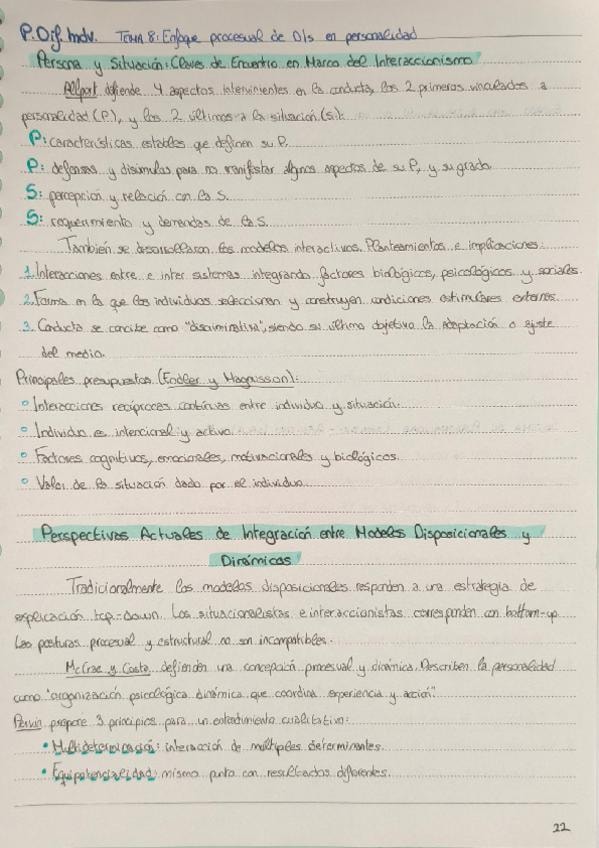 P. Dif. Indv. TEMA 8: Enfoque procesual de DIs en personalidad
Persona y Situación: Claves de Encuentro en Marco del Interaccionismo
Allport defiende 4 aspectos intervinientes en la conducta, los 2 primeros vinculados a
personalidad (P.), y los 2 últimos a la situación (s.):
P: características estables que definen su P.
P: defensas y disimulos para no manifestar algnos aspectos de su P, y su grado.
S: percepción y relación con la S.
S: requerimiento y demandas de la S.
También se desarrollaron los modelos interactivos. Planteamientos e implicaciones:
1. Interacciones entre e inter sistemas integrando factores biológicos, psicológicos y sociales.
2. Forma en la que los individuos seleccionen y construyen condiciones estimulares externas.
3. Conducta se concibe como "discriminativa", siendo su último objetivo la adaptación o ajuste
del medio.
Principales presupuestos (Endler y Magnusson):
• Interacciones recíprocas contínuas entre individuo y situación.
• Individuo es intencional y activo.
• Factores cognitivos, emocionales, motivacionales y biológicos.
• Valor de la situación dado por el individuo.
Perspectivas Actuales de Integración entre Modelos Disposicionales y
Dinámicos
Tradicionalmente los modelos disposicionales responden a una estrategia de
explicación top-down. Los situacionalistas e interaccionistas corresponden con bottom-up.
Las posturas procesual y estructural no son incompatibles.
McCrae y Costa defienden una concepción procesual y dinámica. Describen la personalidad
como "organización psicológica dinámica que coordina experiencia y acción".
Pervin propone 3 principios para un entendimiento cualitativo:
• Multideterminación: interacción de múltiples determinantes.
• Equipotencialidad: mismo punto con resultados diferentes.
22